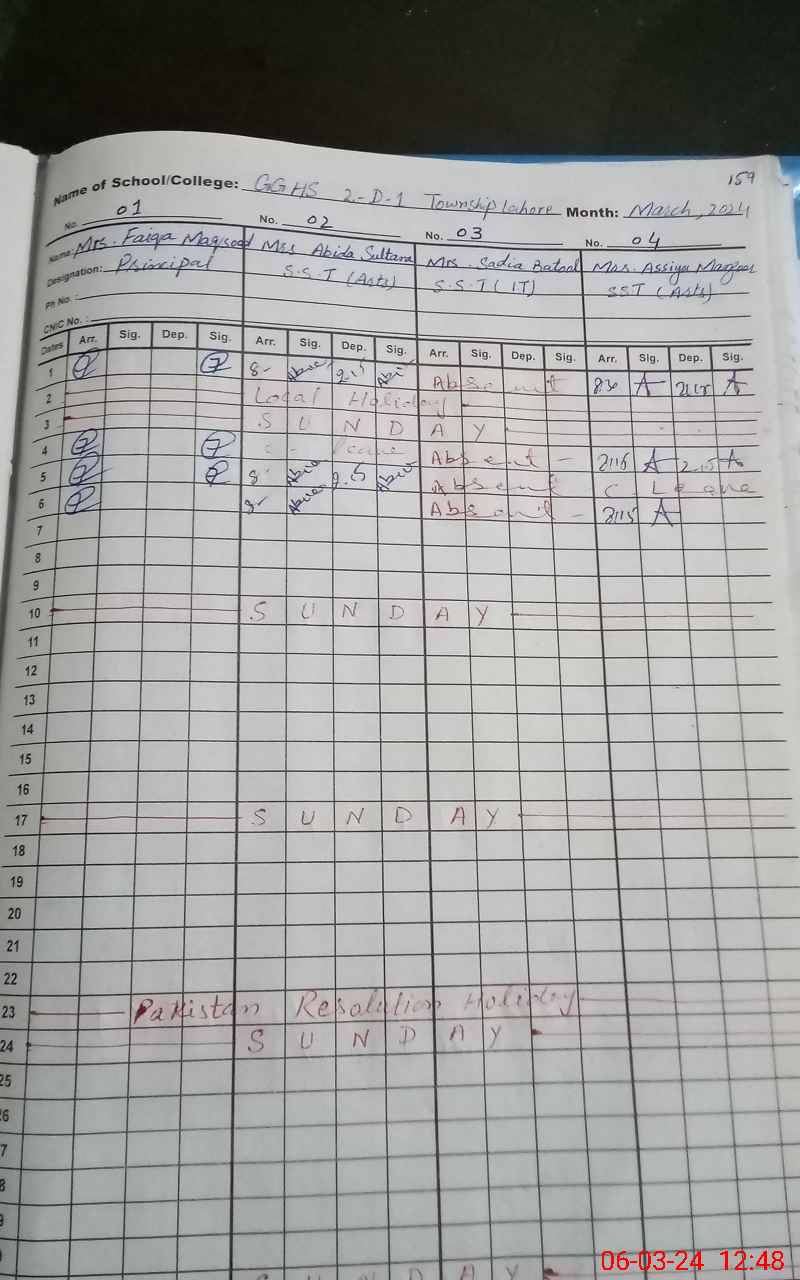 159
Name of School/College: GGHS 2-D-1 Township Lahore Month: March, 2024
No. 01 No. 02 No. 03 No. 04
Name: Mrs. Faiqa Maqsood Mrs Abida Sultana Mrs. Sadia Batool Mrs. Assiya
Designation: Principal S.S.T (Arts) S.S.T (IT) SST (Arts)
Ph No. :
CNIC No. :
Dates Arr. Sig. Dep. Sig. Arr. Sig. Dep. Sig. Arr. Sig. Dep. Sig. Arr. Sig. Dep. Sig.
1 8- 2.15 Absent A A
2 Local Holiday
3 SUNDAY
4 leave Absent - A 2.15 A
5 8- Absent C. Leave
6 8- Absent - A
7
8
9
10 SUNDAY
11
12
13
14
15
16
17 SUNDAY
18
19
20
21
22
23 Pakistan Resolution Holiday
24 SUNDAY
25
6
7
8
9
SUNDAY
06-03-24 12:48